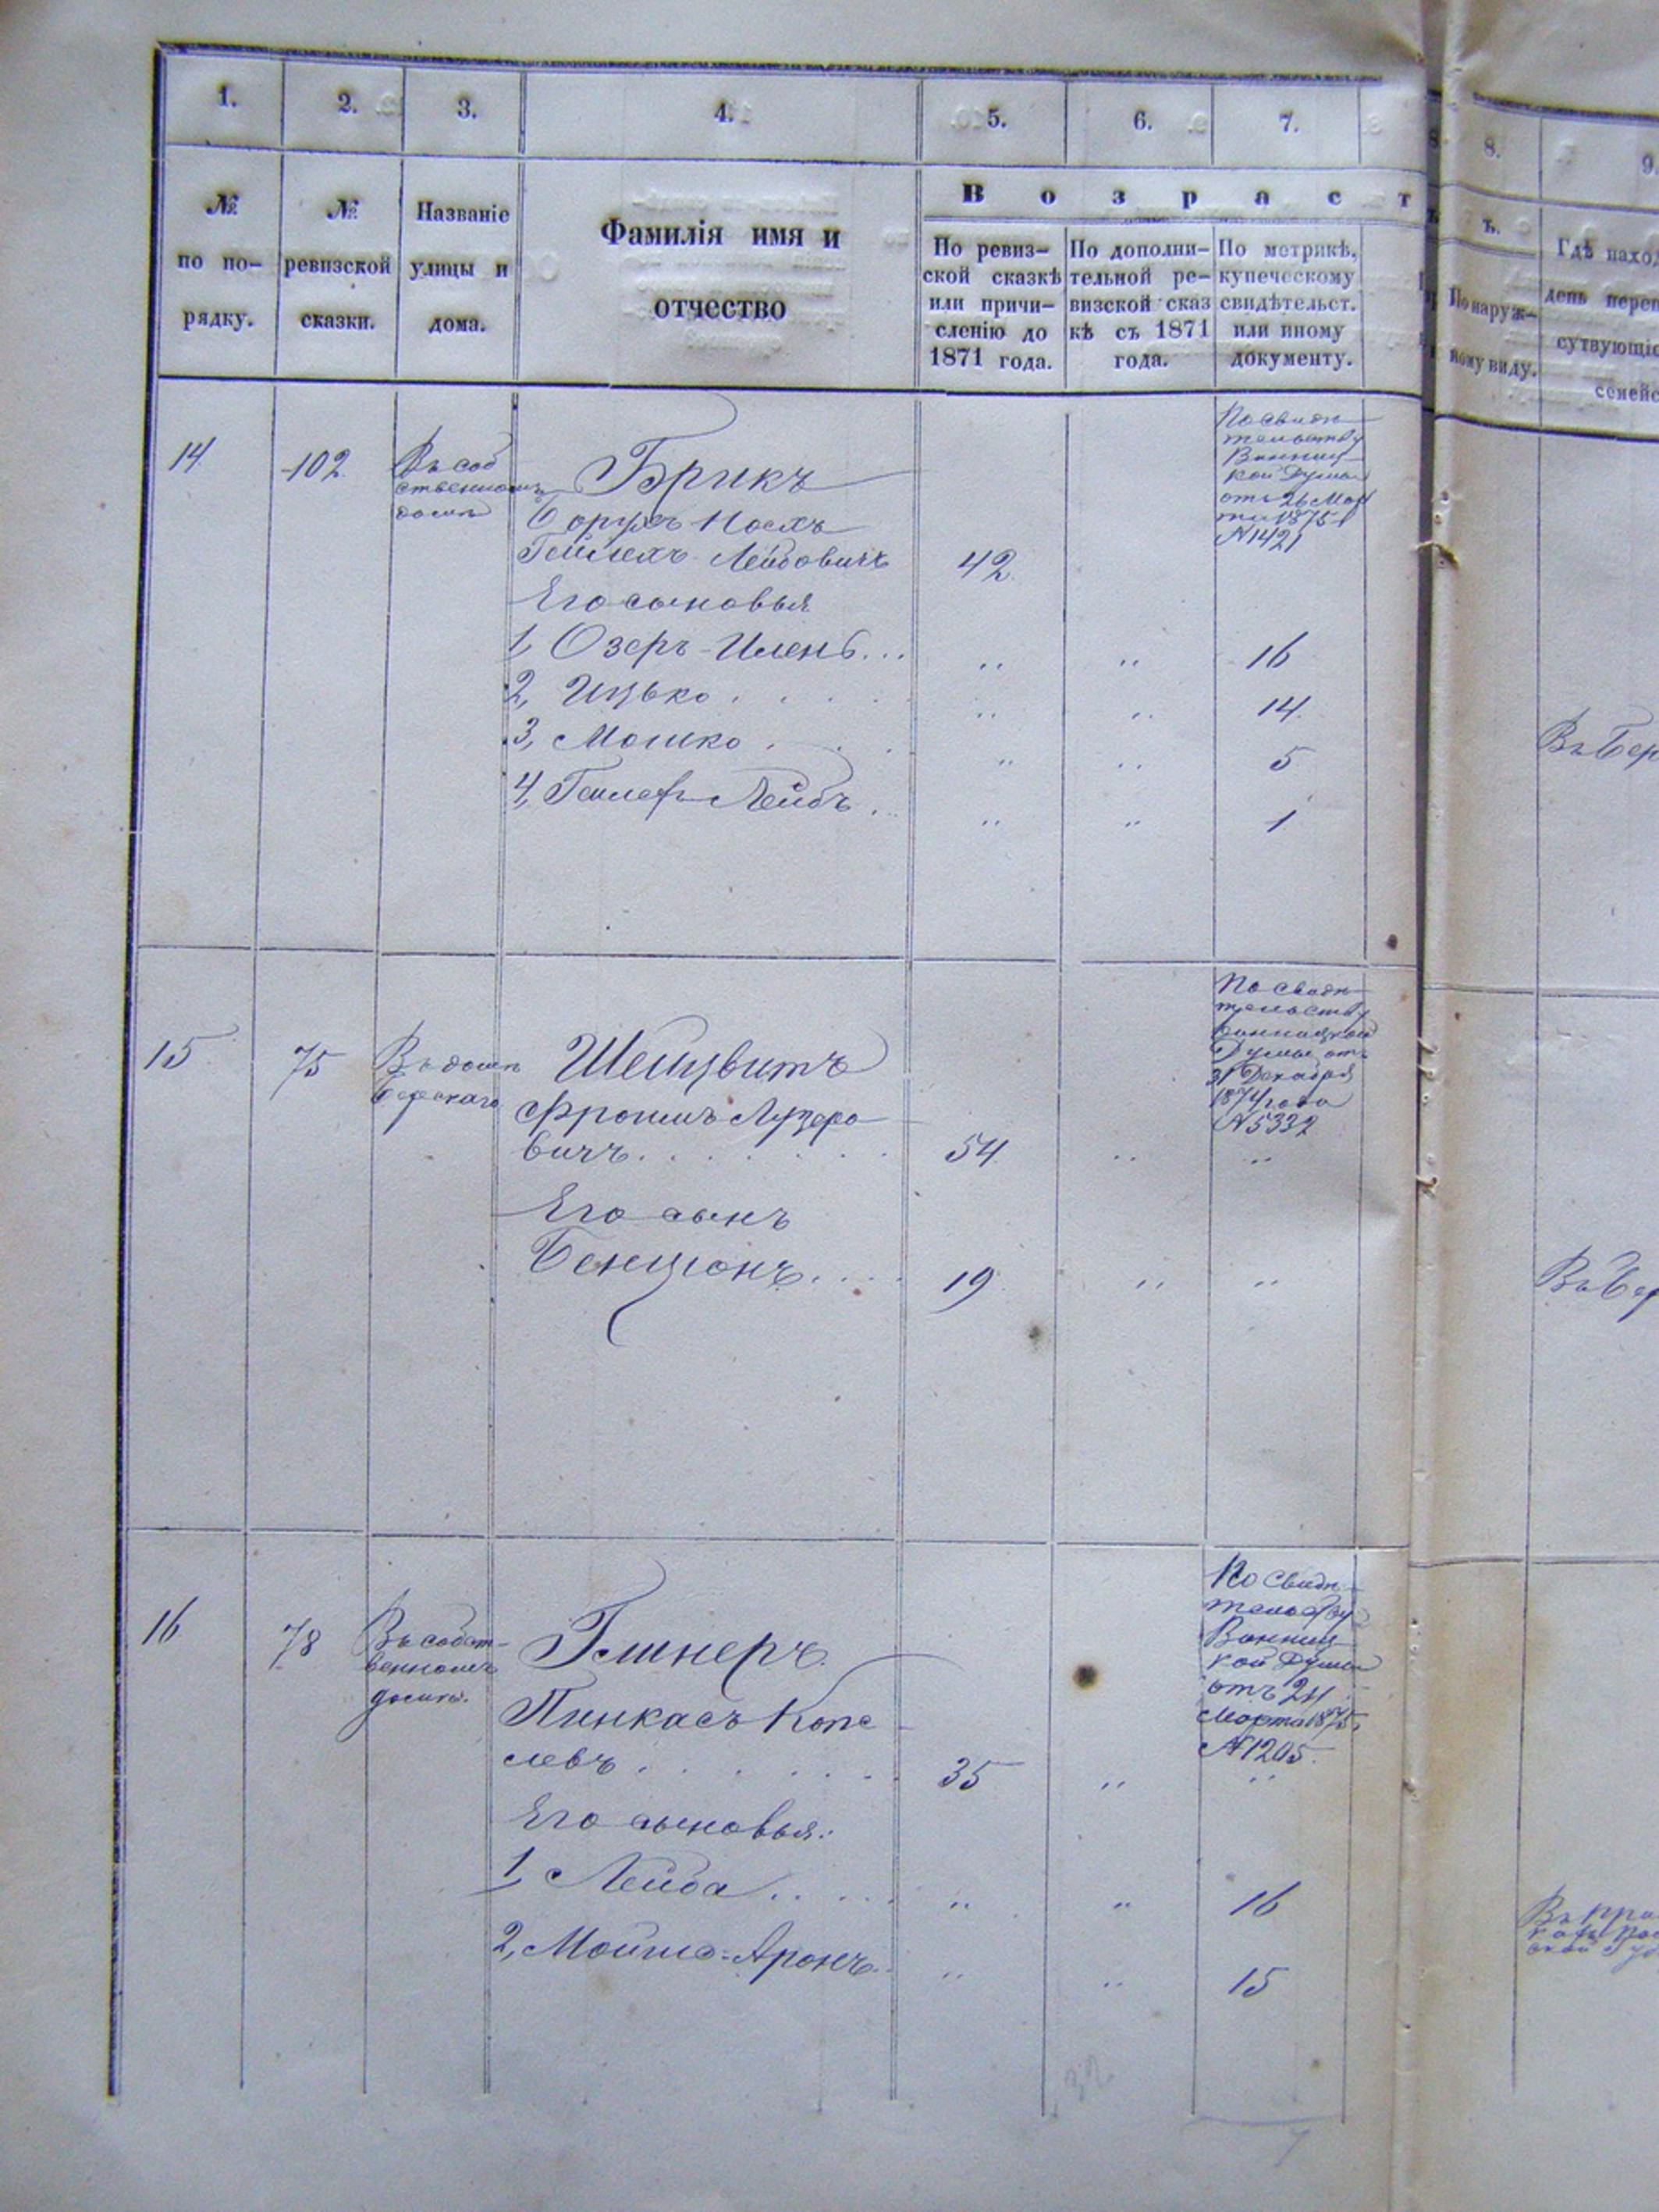 1. 2. 3. 4. 5. 6. 7. 8. 9.
№ по по-рядку.
№ ревизской сказки.
Названіе улицы и дома.
Фамилія имя и
отчество
Возрастъ.
По ревиз-
ской сказкѣ
или причи-
сленію до
1871 года.
По дополни-
тельной ре-
визской сказ
кѣ съ 1871
года.
По метрикѣ,
купеческому
свидѣтельст.
или иному
документу.
По наруж-
ному виду.
Гдѣ наход
день переп
сутвующіс
семейс
14
102
Въ соб
ственномъ
домѣ
Брикъ
Борухъ-Носхъ
Лейбовичъ
42
По свидѣ
тельству
Винниц
кой Думы
отъ 26 Мар
та 1875 г
№ 1421
Его сыновья
1, Озеръ- ... „ „ 16
2, Ицько . . . . „ „ 14
3, Мошко . . . „ „ 5
4, Лейбъ . „ „ 1
Въ Бер
15
75
Въ домѣ
Шейнвитъ
Фроимъ Лузеро
вичъ . . . . . . 54 „ „
По свидѣ
тельству
Винницкой
Думы отъ
31 Декабря
1874 года
№ 5332
Его сынъ
Бенціонъ . . . . 19 „ „
Въ Бер
16
78
Въ собст-
венномъ
домѣ.
Пинкасъ Копе
левъ . . . . . . 35 „ „
По свидѣ
тельству
Винниц
кой Думы
отъ 24
Марта 1875,
№ 1205.
Его сыновья:
1, Лейба . . . . . „ „ 16
2, Мойше-Аронъ „ „ 15